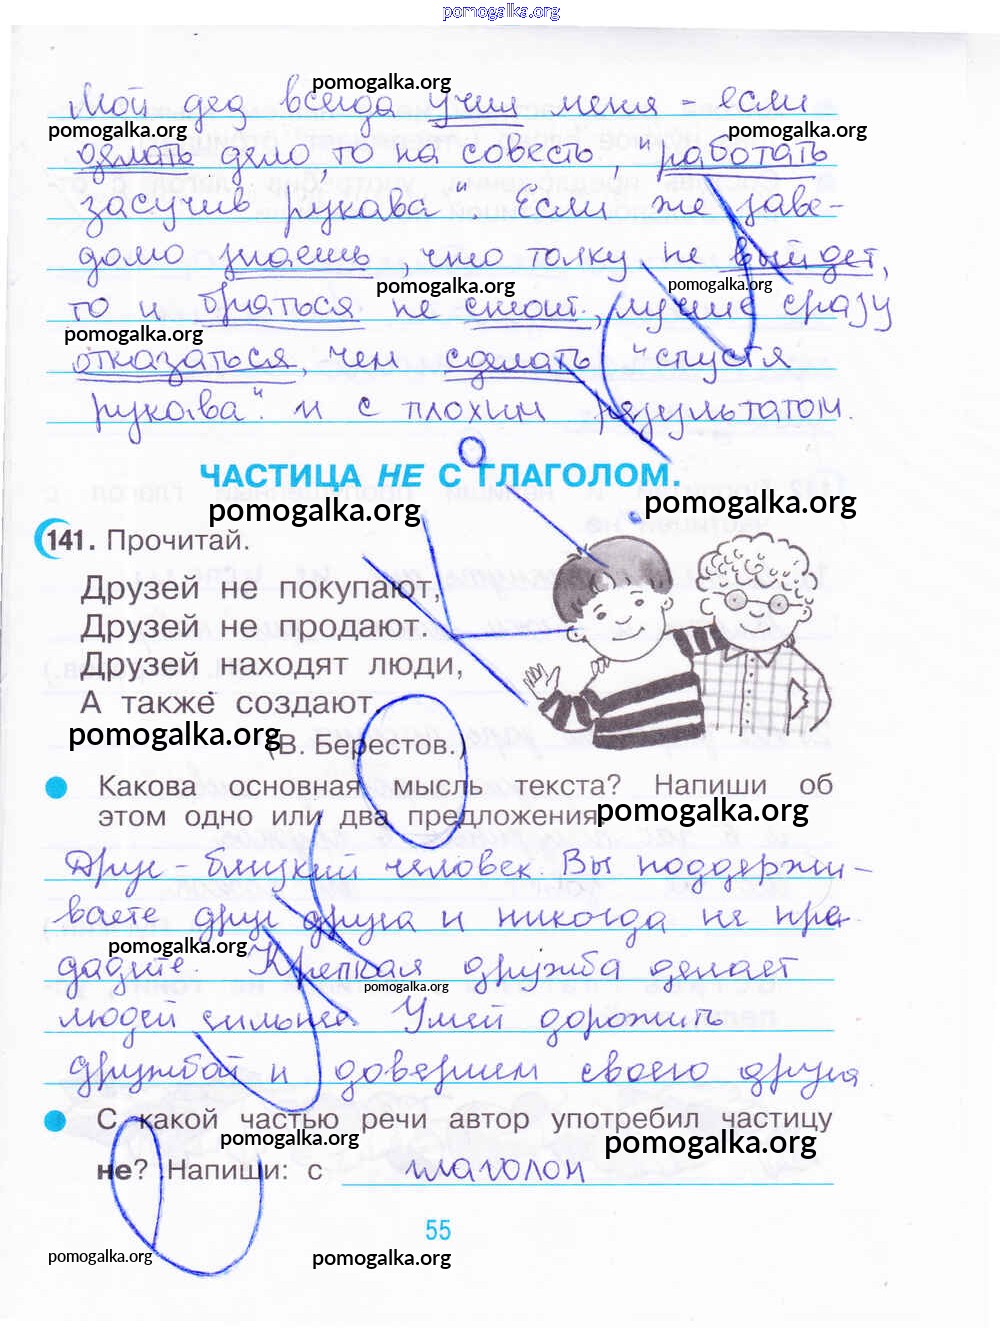 pomogalka.org
pomogalka.org
Мой дед всегда учил меня - если
pomogalka.org pomogalka.org
делать дело, то на совесть, "работать
засучив рукава" Если же заве-
домо знаешь, что толку не выйдет,
pomogalka.org pomogalka.org
то и браться не стоит, лучше сразу
pomogalka.org
отказаться, чем сделать "спустя
рукава". и с плохим результатом.
ЧАСТИЦА НЕ С ГЛАГОЛОМ.
pomogalka.org pomogalka.org
141. Прочитай.
Друзей не покупают,
Друзей не продают.
Друзей находят люди,
А также создают.
pomogalka.org
(В. Берестов.)
Какова основная мысль текста? Напиши об
этом одно или два предложения.
pomogalka.org
Друг - близкий человек. Вы поддержи-
ваете друг друга и никогда не пре-
pomogalka.org
дадите. Крепкая дружба делает
pomogalka.org
людей сильнее. Умей дорожить
дружбой и доверием своего друга.
С какой частью речи автор употребил частицу
pomogalka.org pomogalka.org
не? Напиши: с глаголом
55
pomogalka.org pomogalka.org